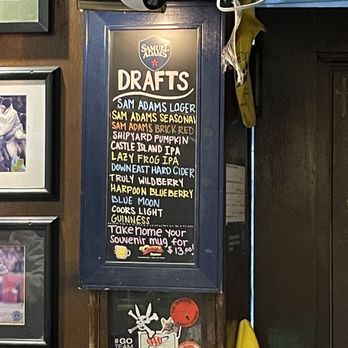 SAMUEL
ADAMS
DRAFTS
SAM ADAMS LAGER
SAM ADAMS SEASONAL
SAM ADAMS BRICK RED
SHIPYARD PUMPKIN
CASTLE ISLAND IPA
LAZY FROG IPA
DOWNEAST HARD CIDER
TRULY WILDBERRY
HARPOON BLUEBERRY
BLUE MOON
COORS LIGHT
GUINNESS
Take home your
Souvenir mug for
$13.00!
#GO
TEAM